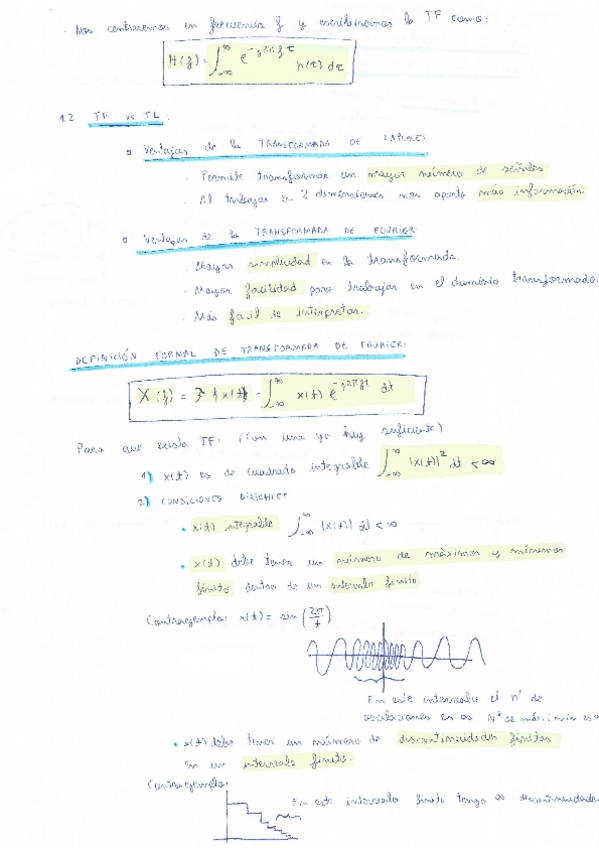 Nos centraremos en frecuencia f y escribiremos la TF como:
H(f) = ∫_{-∞}^{∞} e^{-j2πfτ} h(τ) dτ
1.2 TF vs TL:
Ventajas de la TRANSFORMADA DE LAPLACE:
· Permite transformar un mayor número de señales
· Al trabajar en 2 dimensiones nos aporta más información
Ventajas de la TRANSFORMADA DE FOURIER:
· Mayor simplicidad en la transformada.
· Mayor facilidad para trabajar en el dominio transformado.
· Más facil de interpretar.
DEFINICIÓN FORMAL DE TRANSFORMADA DE FOURIER:
X(f) = F{x(t)} = ∫_{-∞}^{∞} x(t) e^{-j2πft} dt
Para que exista TF: (Con una ya suficiente)
1) x(t) es de cuadrado integrable ∫_{-∞}^{∞} |x(t)|² dt < ∞
2) CONDICIONES DIRICHLET
• x(t) integrable ∫_{-∞}^{∞} |x(t)| dt < ∞
• x(t) debe tener un número de máximos y mínimos
finito dentro de un intervalo finito
Contraejemplo: x(t) = sin (2π/t)
En este intervalo el nº de
oscilaciones es ∞ Nº de máx. i min es ∞
• x(t) debe tener un número de discontinuidades finitas
en un intervalo finito.
Contraejemplo:
En este intervalo finito tengo ∞ discontinuidades